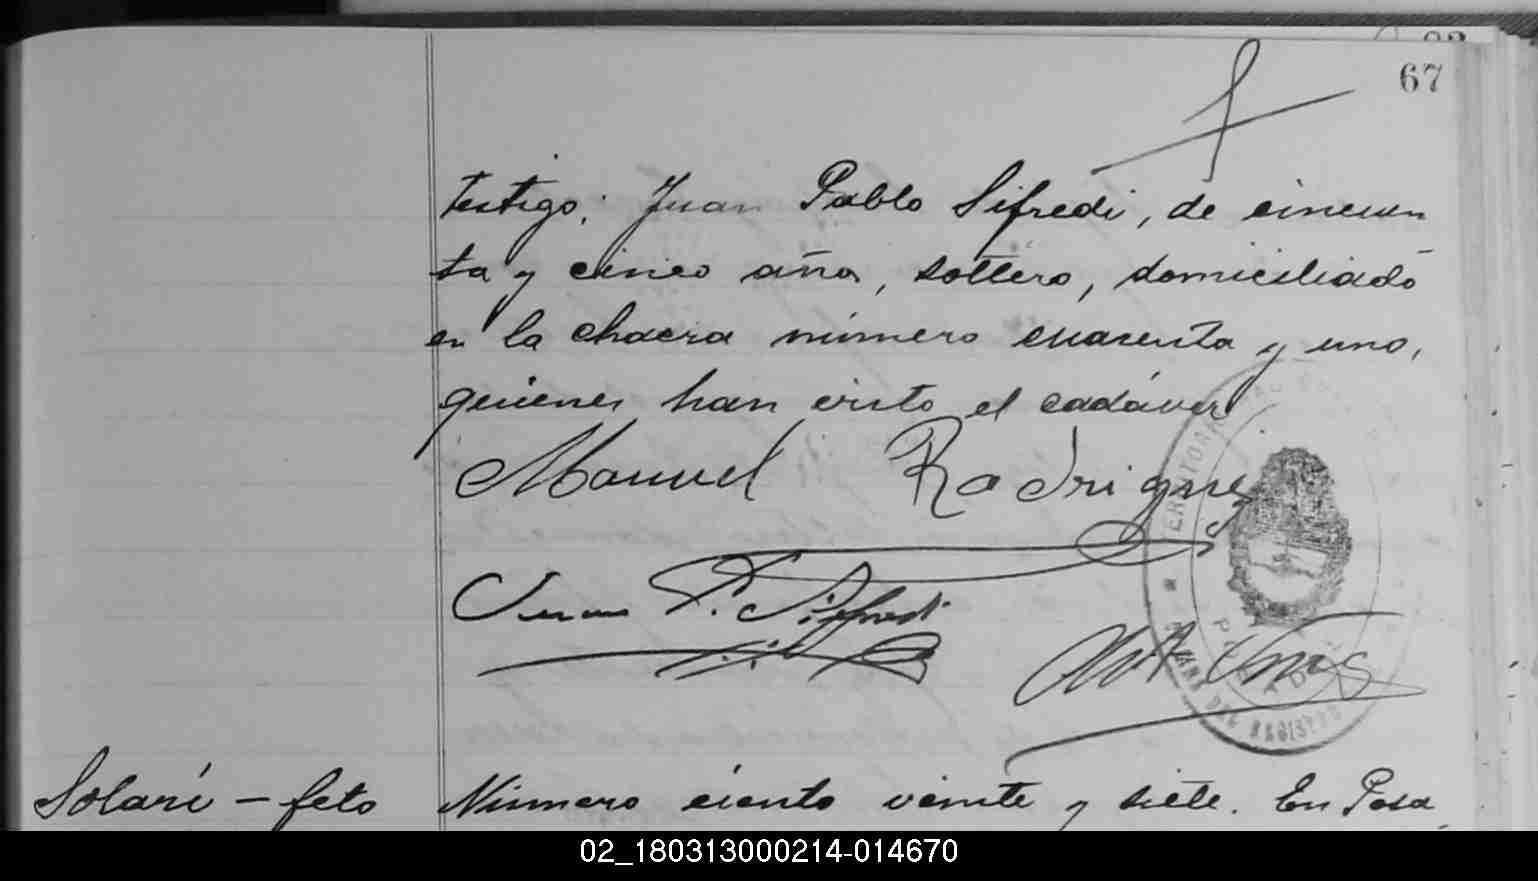 67
testigo; Juan Pablo Sifredi, de cincuen
ta y cinco años, soltero, domiciliado
en la chacra número cuarenta y uno,
quienes han visto el cadáver
Manuel Rodriguez
Juan P. Sifredi
Solari - feto Número ciento veinte y siete. En Posa
02_180313000214-014670